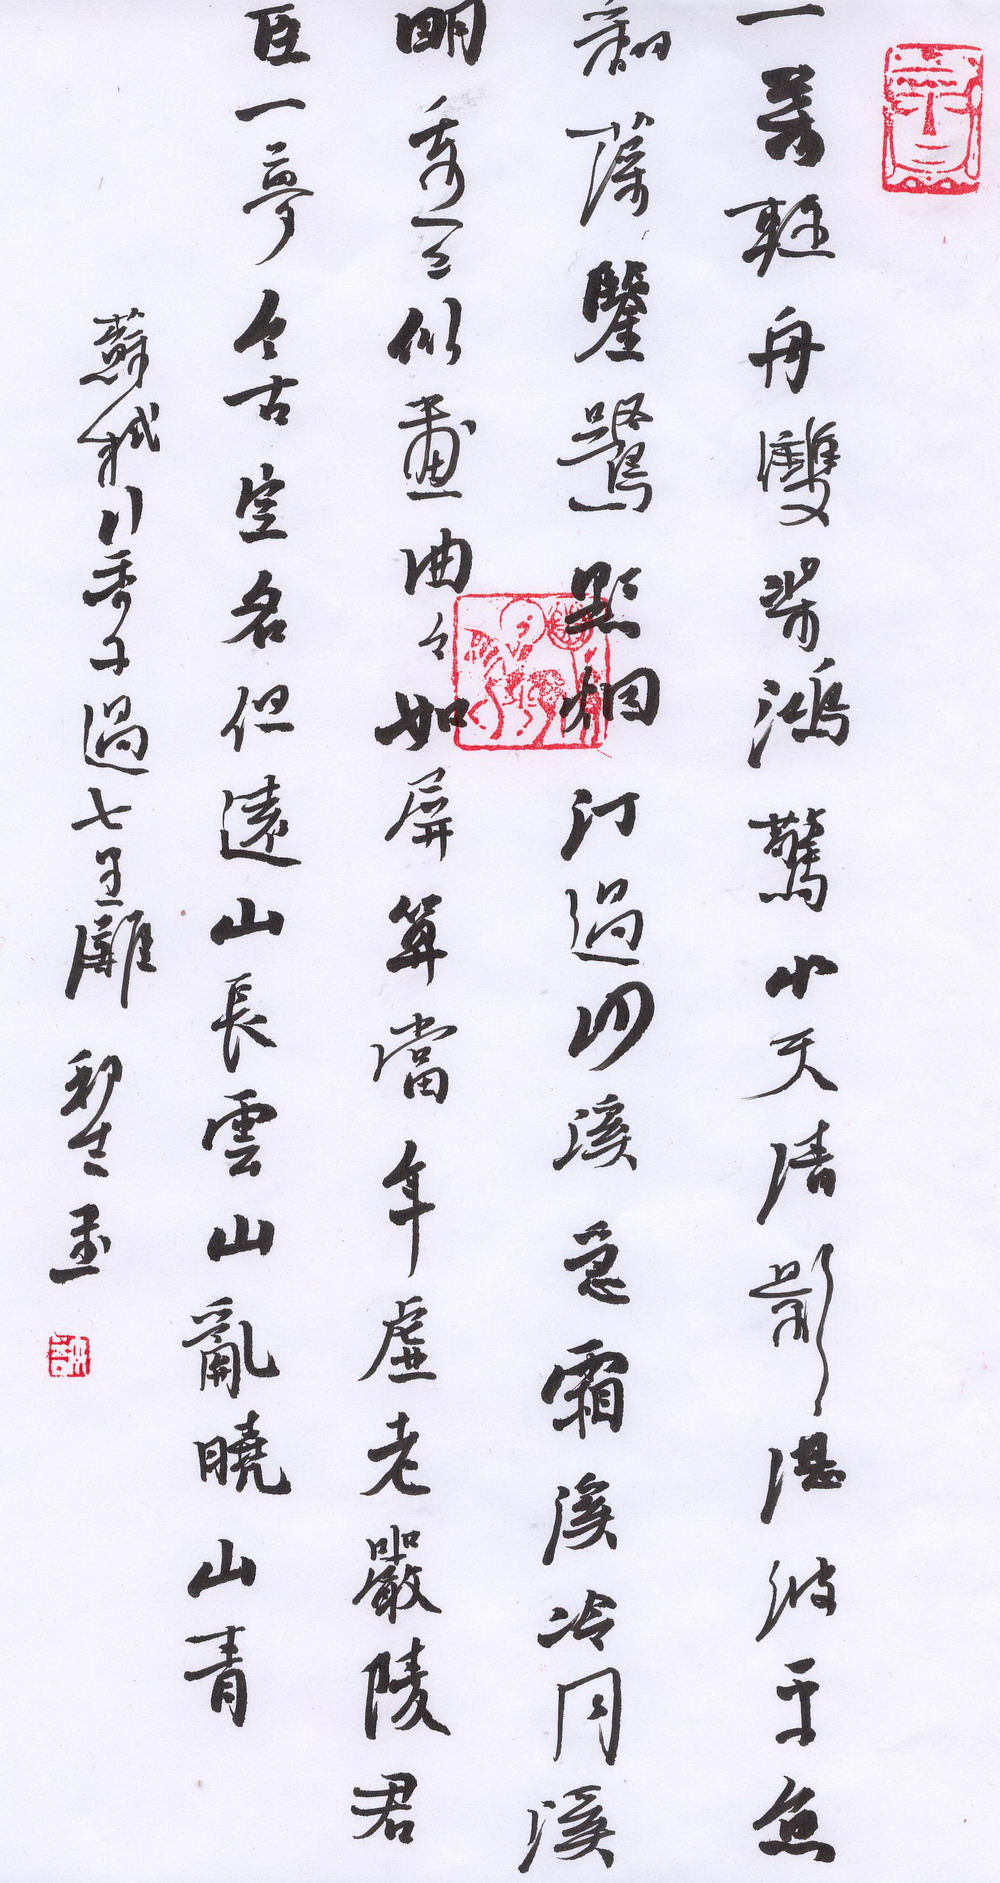 一葉輕舟雙槳鴻驚水天清影湛波平魚
翻藻鑒鷺點烟汀過沙溪急霜溪冷月溪
明重々似畫曲々如屏算當年虛老嚴陵君
臣一夢今古空名但遠山長雲山亂曉山青
蘇軾行香子過七里灘